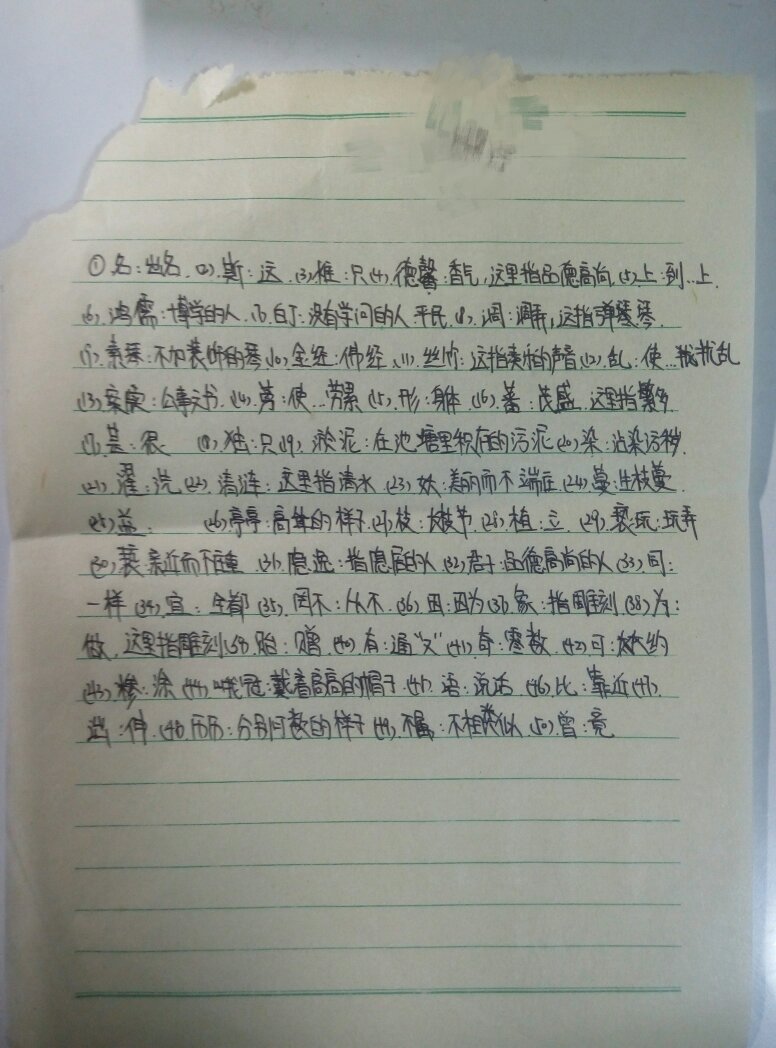 ①名：出名 (2)斯：这 (3)惟：只 (4)德馨：香气，这里指品德高尚 (5)上：到…上
(6)鸿儒：博学的人 (7)白丁：没有学问的人 平民 (8)调：调弄，这指弹琴
(9)素琴：不加装饰的琴 (10)金经：佛经 (11)丝竹：这指奏乐的声音 (12)乱：使…扰乱
(13)案牍：公事文书 (14)劳：使…劳累 (15)形：身体 (16)蕃：茂盛 这里指繁多
(17)甚：很 (18)独：只 (19)淤泥：在池塘里积存的污泥 (20)染：沾染污秽
(21)濯：洗 (22)清涟：这里指清水 (23)妖：美丽而不端庄 (24)蔓：生枝蔓
(25)益： (26)亭亭：高耸的样子 (27)枝：长枝节 (28)植：立 (29)亵玩：玩弄
(30)亵 亲近而不庄重 (31)隐逸：指隐居的人 (32)君子：品德高尚的人 (33)同：
一样 (34)宜：全都 (35)罔不：从不 (36)因：因为 (37)象：指雕刻 (38)为：
做，这里指雕刻 (39)贻：赠 (40)有：通“又” (41)奇：零数 (42)可：大约
(43)糁：涂 (44)峨冠：戴着高高的帽子 (45)语：说话 (46)比：靠近 (47)
端：件 (48)历历：分明可数的样子 (49)不属：不相类似 (50)曾：竟